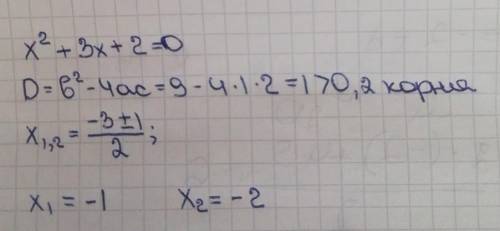 x² + 3x + 2 = 0
D = b² - 4ac = 9 - 4·1·2 = 1 > 0, 2 корня
x₁,₂ = (-3 ± 1)/2;
x₁ = -1 x₂ = -2